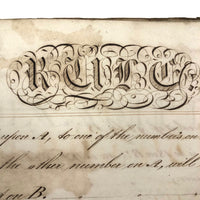 RULE.
upon A, to one of the numbers on
the other number on A, will
on B.